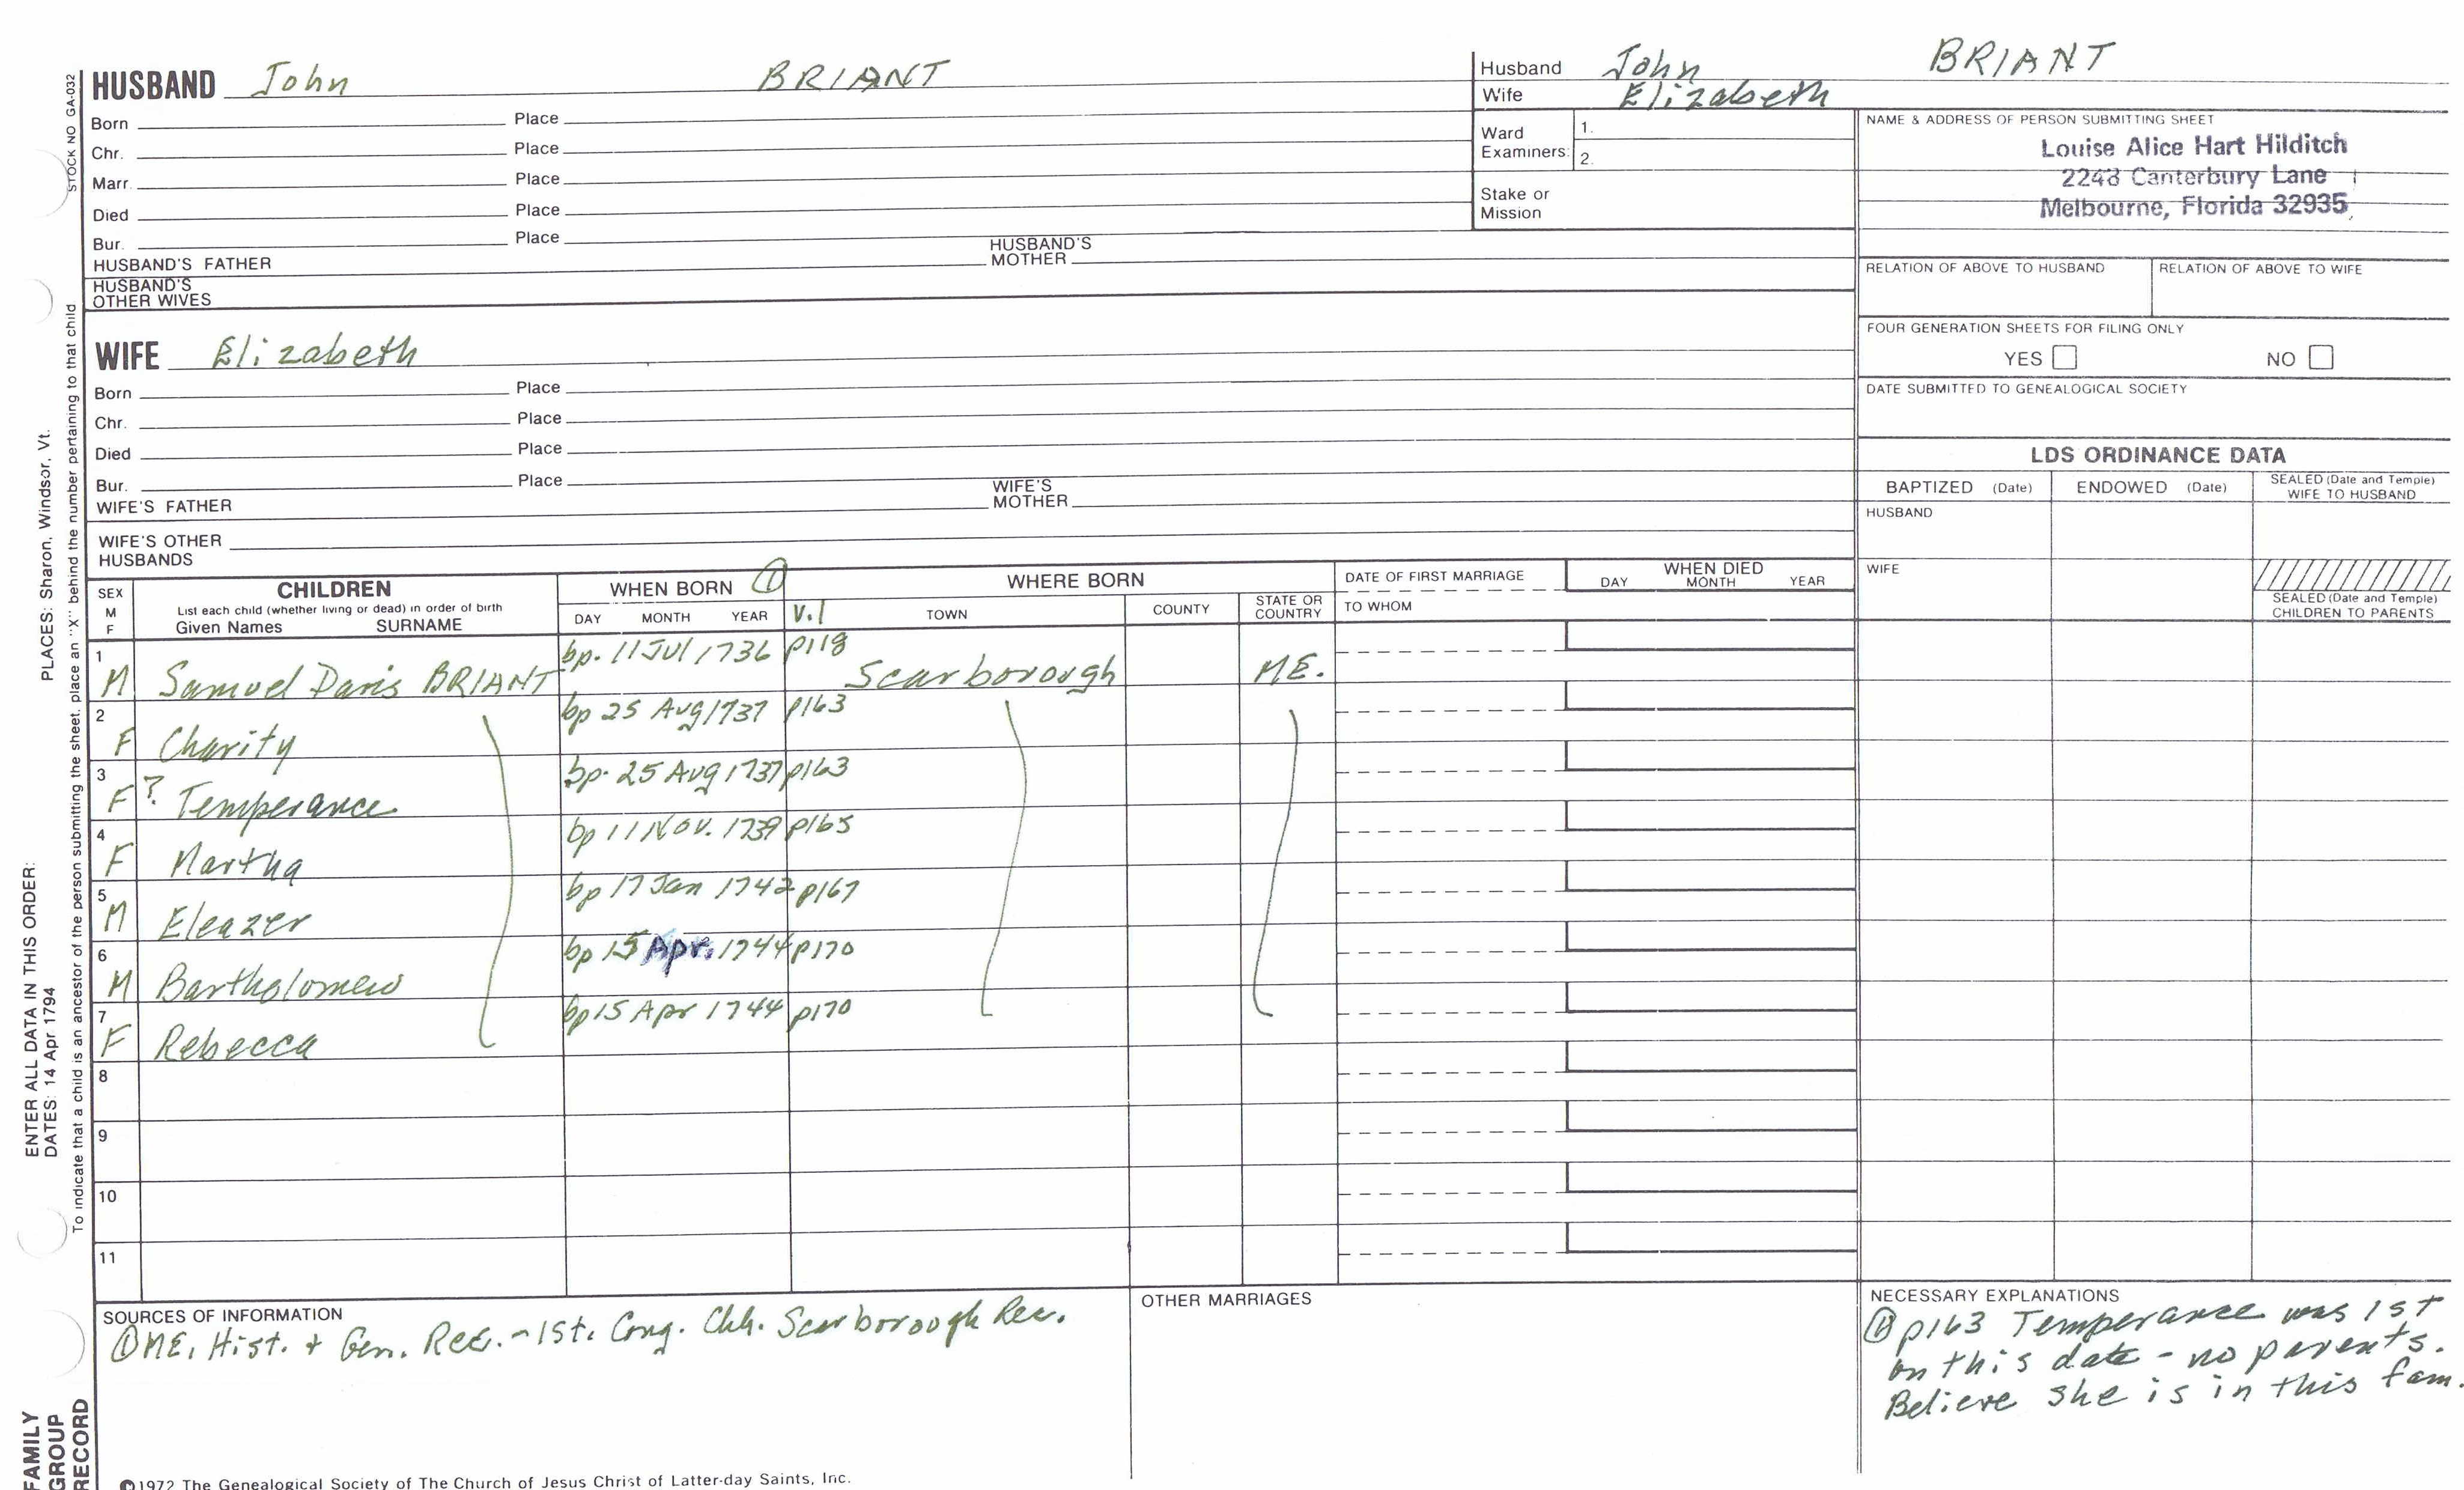 HUSBAND John BRIANT
Born Place
Chr. Place
Marr. Place
Died Place
Bur. Place
HUSBAND'S FATHER HUSBAND'S MOTHER
HUSBAND'S OTHER WIVES
WIFE Elizabeth
Born Place
Chr. Place
Died Place
Bur. Place
WIFE'S FATHER WIFE'S MOTHER
WIFE'S OTHER HUSBANDS
Husband John BRIANT
Wife Elizabeth
Ward Examiners: 1.
2.
Stake or Mission
NAME & ADDRESS OF PERSON SUBMITTING SHEET
Louise Alice Hart Hilditch
2248 Canterbury Lane
Melbourne, Florida 32935
RELATION OF ABOVE TO HUSBAND RELATION OF ABOVE TO WIFE
FOUR GENERATION SHEETS FOR FILING ONLY
YES NO
DATE SUBMITTED TO GENEALOGICAL SOCIETY
LDS ORDINANCE DATA
BAPTIZED (Date) ENDOWED (Date) SEALED (Date and Temple) WIFE TO HUSBAND
HUSBAND
WIFE
SEALED (Date and Temple) CHILDREN TO PARENTS
SEX M F CHILDREN WHEN BORN ① WHERE BORN DATE OF FIRST MARRIAGE WHEN DIED
List each child (whether living or dead) in order of birth
Given Names SURNAME DAY MONTH YEAR v.1 TOWN COUNTY STATE OR COUNTRY TO WHOM DAY MONTH YEAR
1 M Samuel Davis BRIANT bp. 11 Jul 1736 p118 Scarborough ME.
2 F Charity bp 25 Aug 1737 p163
3 F ? Temperance bp. 25 Aug 1737 p163
4 F Martha bp 11 Nov. 1739 p165
5 M Eleazer bp 17 Jan 1742 p167
6 M Bartholomew bp 15 Apr. 1744 p170
7 F Rebecca bp 15 Apr 1744 p170
8
9
10
11
SOURCES OF INFORMATION
① ME. Hist. + Gen. Rec. - 1st. Cong. Chh. Scarborough Rec.
OTHER MARRIAGES
NECESSARY EXPLANATIONS
① p163 Temperance was 1st
on this date - no parents.
Believe she is in this fam.
©1972 The Genealogical Society of The Church of Jesus Christ of Latter-day Saints, Inc.
STOCK NO GA-032
To indicate that a child is an ancestor of the person submitting the sheet, place an "X" behind the number pertaining to that child
ENTER ALL DATA IN THIS ORDER:
DATES: 14 Apr 1794 PLACES: Sharon, Windsor, Vt.
FAMILY
GROUP
RECORD